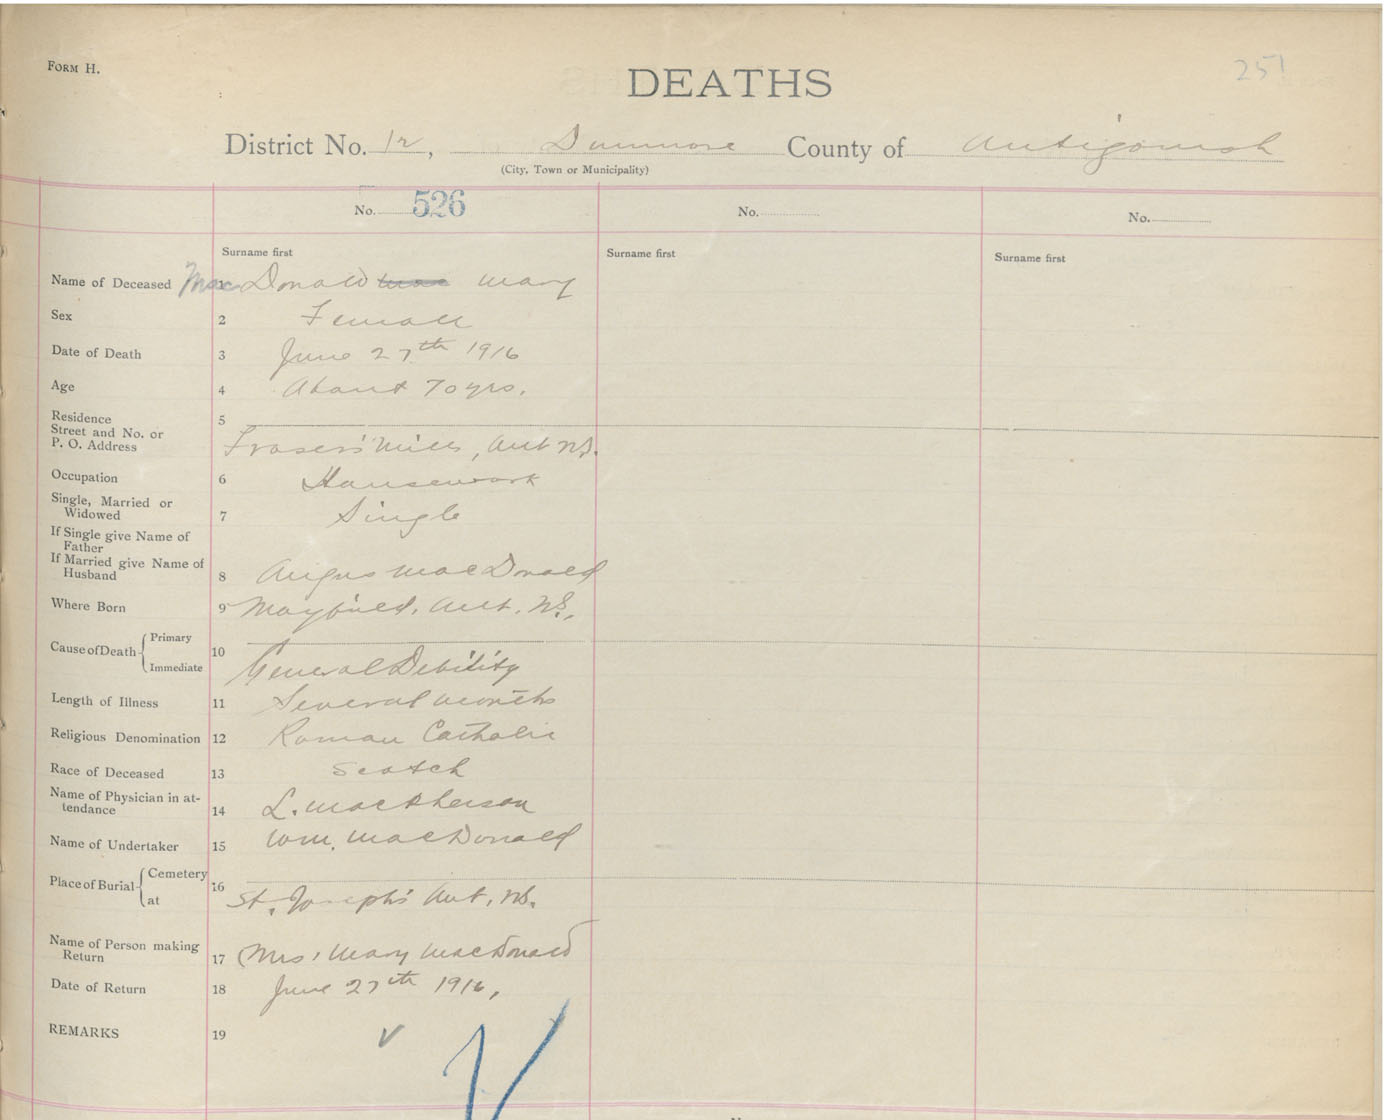 FORM H.
251
DEATHS
District No. 12, Dunmore County of Antigonish
(City, Town or Municipality)
No. 526
No.
No.
Surname first
Surname first
Surname first
Name of Deceased 1 MacDonald Mac Mary
Sex 2 Female
Date of Death 3 June 27th 1916
Age 4 About 70 yrs.
Residence 5
Street and No. or
P. O. Address Frasers' Mills, Ant N.S.
Occupation 6 Housework
Single, Married or
Widowed 7 Single
If Single give Name of
Father
If Married give Name of
Husband 8 Angus MacDonald
Where Born 9 Mayfield, Ant. N.S.,
Cause of Death Primary 10
Immediate General Debility
Length of Illness 11 Several months
Religious Denomination 12 Roman Catholic
Race of Deceased 13 Scotch
Name of Physician in at-
tendance 14 L. MacPherson
Name of Undertaker 15 Wm. MacDonald
Place of Burial Cemetery 16
at St. Joseph's Ant, N.S.
Name of Person making
Return 17 (Mrs, Mary MacDonald
Date of Return 18 June 27th 1916,
REMARKS 19